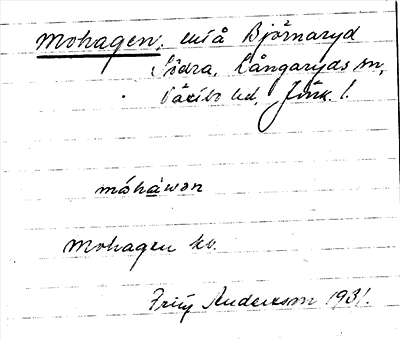 Mohagen, utå Björnaryd
Södra, Långaryds sn,
Västbo hd, Jönk. l.
móháwən
Mohagen kv.
Fritz Andersson 1931.